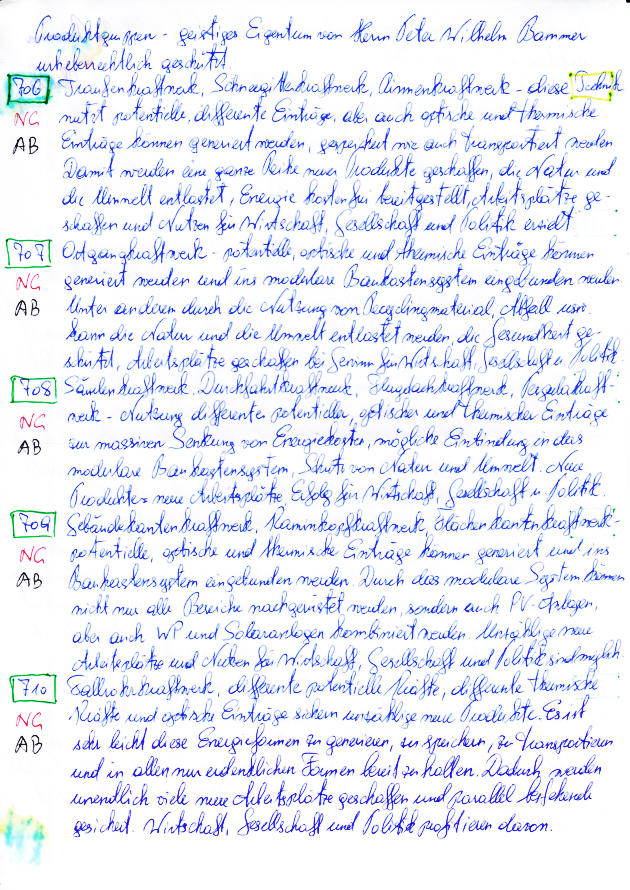 Produktgruppen - geistiges Eigentum von Herrn Peter Wilhelm Bammer
urheberrechtlich geschützt
706 Traufenkraftwerk, Schneegitterkraftwerk, Rinnenkraftwerk - diese Technik
NG nutzt potentielle, differente Einträge, aber auch optische und thermische
AB Einträge können generiert werden, gespeichert wie auch transportiert werden
Damit werden eine ganze Reihe neuer Produkte geschaffen, die Natur und
die Umwelt entlastet, Energie kostenfrei bereitgestellt, Arbeitsplätze ge-
schaffen und Nutzen für Wirtschaft, Gesellschaft und Politik erzielt
707 Ortgangkraftwerk - potentielle, optische und thermische Einträge können
NG generiert werden und ins modulare Baukastensystem eingebunden werden.
AB Unter anderem durch die Nutzung von Recyclingmaterial, Abfall usw.
kann die Natur und die Umwelt entlastet werden, die Gesundheit ge-
schützt, Arbeitsplätze geschaffen bei Gewinn für Wirtschaft, Gesellschaft u. Politik
708 Säulenkraftwerk, Durchfahrtkraftwerk, Flugdachkraftwerk, Pergolakraft-
NG werk - Nutzung differenter potentieller, optischer und thermischer Einträge
AB zur massiven Senkung von Energiekosten, mögliche Einbindung in das
modulare Baukastensystem, Schutz von Natur und Umwelt. Neue
Produkte = neue Arbeitsplätze Erfolg für Wirtschaft, Gesellschaft u. Politik.
709 Gebäudekantenkraftwerk, Kaminkopfkraftwerk, Flächenkantenkraftwerk -
NG potentielle, optische und thermische Einträge können generiert und ins
AB Baukastensystem eingebunden werden. Durch das modulare System können
nicht nur alle Bereiche nachgerüstet werden, sondern auch PV-Anlagen,
aber auch WP und Solaranlagen kombiniert werden. Unzählige neue
Arbeitsplätze und Nutzen für Wirtschaft, Gesellschaft und Politik sind möglich.
710 Fallrohrkraftwerk, differente potentielle Kräfte, differente thermische
NG Kräfte und optische Einträge sichern unzählige neue Produkte. Es ist
AB sehr leicht diese Energieformen zu generieren, zu speichern, zu transportieren
und in allen nur erdenklichen Formen bereit zu halten. Dadurch werden
unendlich viele neue Arbeitsplätze geschaffen und parallel bestehende
gesichert. Wirtschaft, Gesellschaft und Politik profitieren davon.